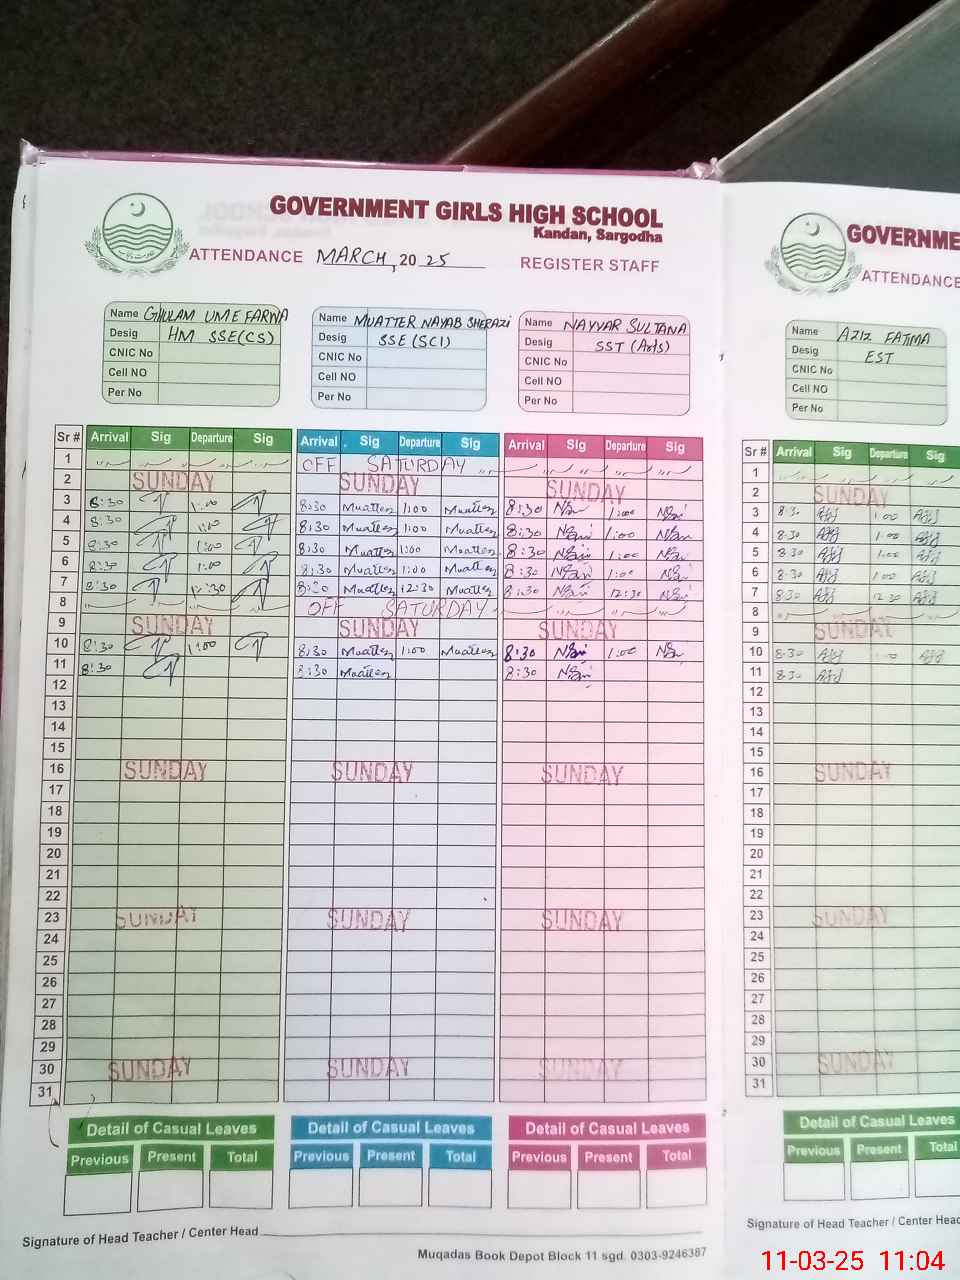 GOVERNMENT GIRLS HIGH SCHOOL
Kandan, Sargodha
ATTENDANCE MARCH, 2025 REGISTER STAFF
Name GHULAM UME FARWA
Desig HM SSE(CS)
CNIC No
Cell NO
Per No
Name MUATTER NAYAB SHERAZI
Desig SSE (SCI)
CNIC No
Cell NO
Per No
Name NAYYAR SULTANA
Desig SST (Arts)
CNIC No
Cell NO
Per No
Sr # Arrival Sig Departure Sig Arrival Sig Departure Sig Arrival Sig Departure Sig
1 OFF SATURDAY
2 SUNDAY SUNDAY SUNDAY
3 8:30 1:00 8:30 Muatter 1:00 Muatter 8:30 1:00
4 8:30 1:00 8:30 Muatter 1:00 Muatter 8:30 1:00
5 8:30 1:00 8:30 Muatter 1:00 Muatter 8:30 1:00
6 8:30 1:00 8:30 Muatter 1:00 Muatter 8:30 1:00
7 8:30 12:30 8:30 Muatter 12:30 Muatter 8:30 12:30
8 OFF SATURDAY
9 SUNDAY SUNDAY SUNDAY
10 8:30 1:00 8:30 Muatter 1:00 Muatter 8:30 1:00
11 8:30 8:30 Muatter 8:30
12
13
14
15
16 SUNDAY SUNDAY SUNDAY
17
18
19
20
21
22
23 SUNDAY SUNDAY SUNDAY
24
25
26
27
28
29
30 SUNDAY SUNDAY SUNDAY
31
Detail of Casual Leaves Detail of Casual Leaves Detail of Casual Leaves
Previous Present Total Previous Present Total Previous Present Total
Signature of Head Teacher / Center Head
Muqadas Book Depot Block 11 sgd. 0303-9246387
GOVERNME
ATTENDANCE
Name AZIZ FATIMA
Desig EST
CNIC No
Cell NO
Per No
Sr # Arrival Sig Departure Sig
1
2 SUNDAY
3 8:30 1:00
4 8:30 1:00
5 8:30 1:00
6 8:30 1:00
7 8:30 12:30
8
9 SUNDAY
10 8:30
11 8:30
12
13
14
15
16 SUNDAY
17
18
19
20
21
22
23 SUNDAY
24
25
26
27
28
29
30 SUNDAY
31
Detail of Casual
Previous Present Total
Signature of Head Teacher / Center Hea
11-03-25 11:04